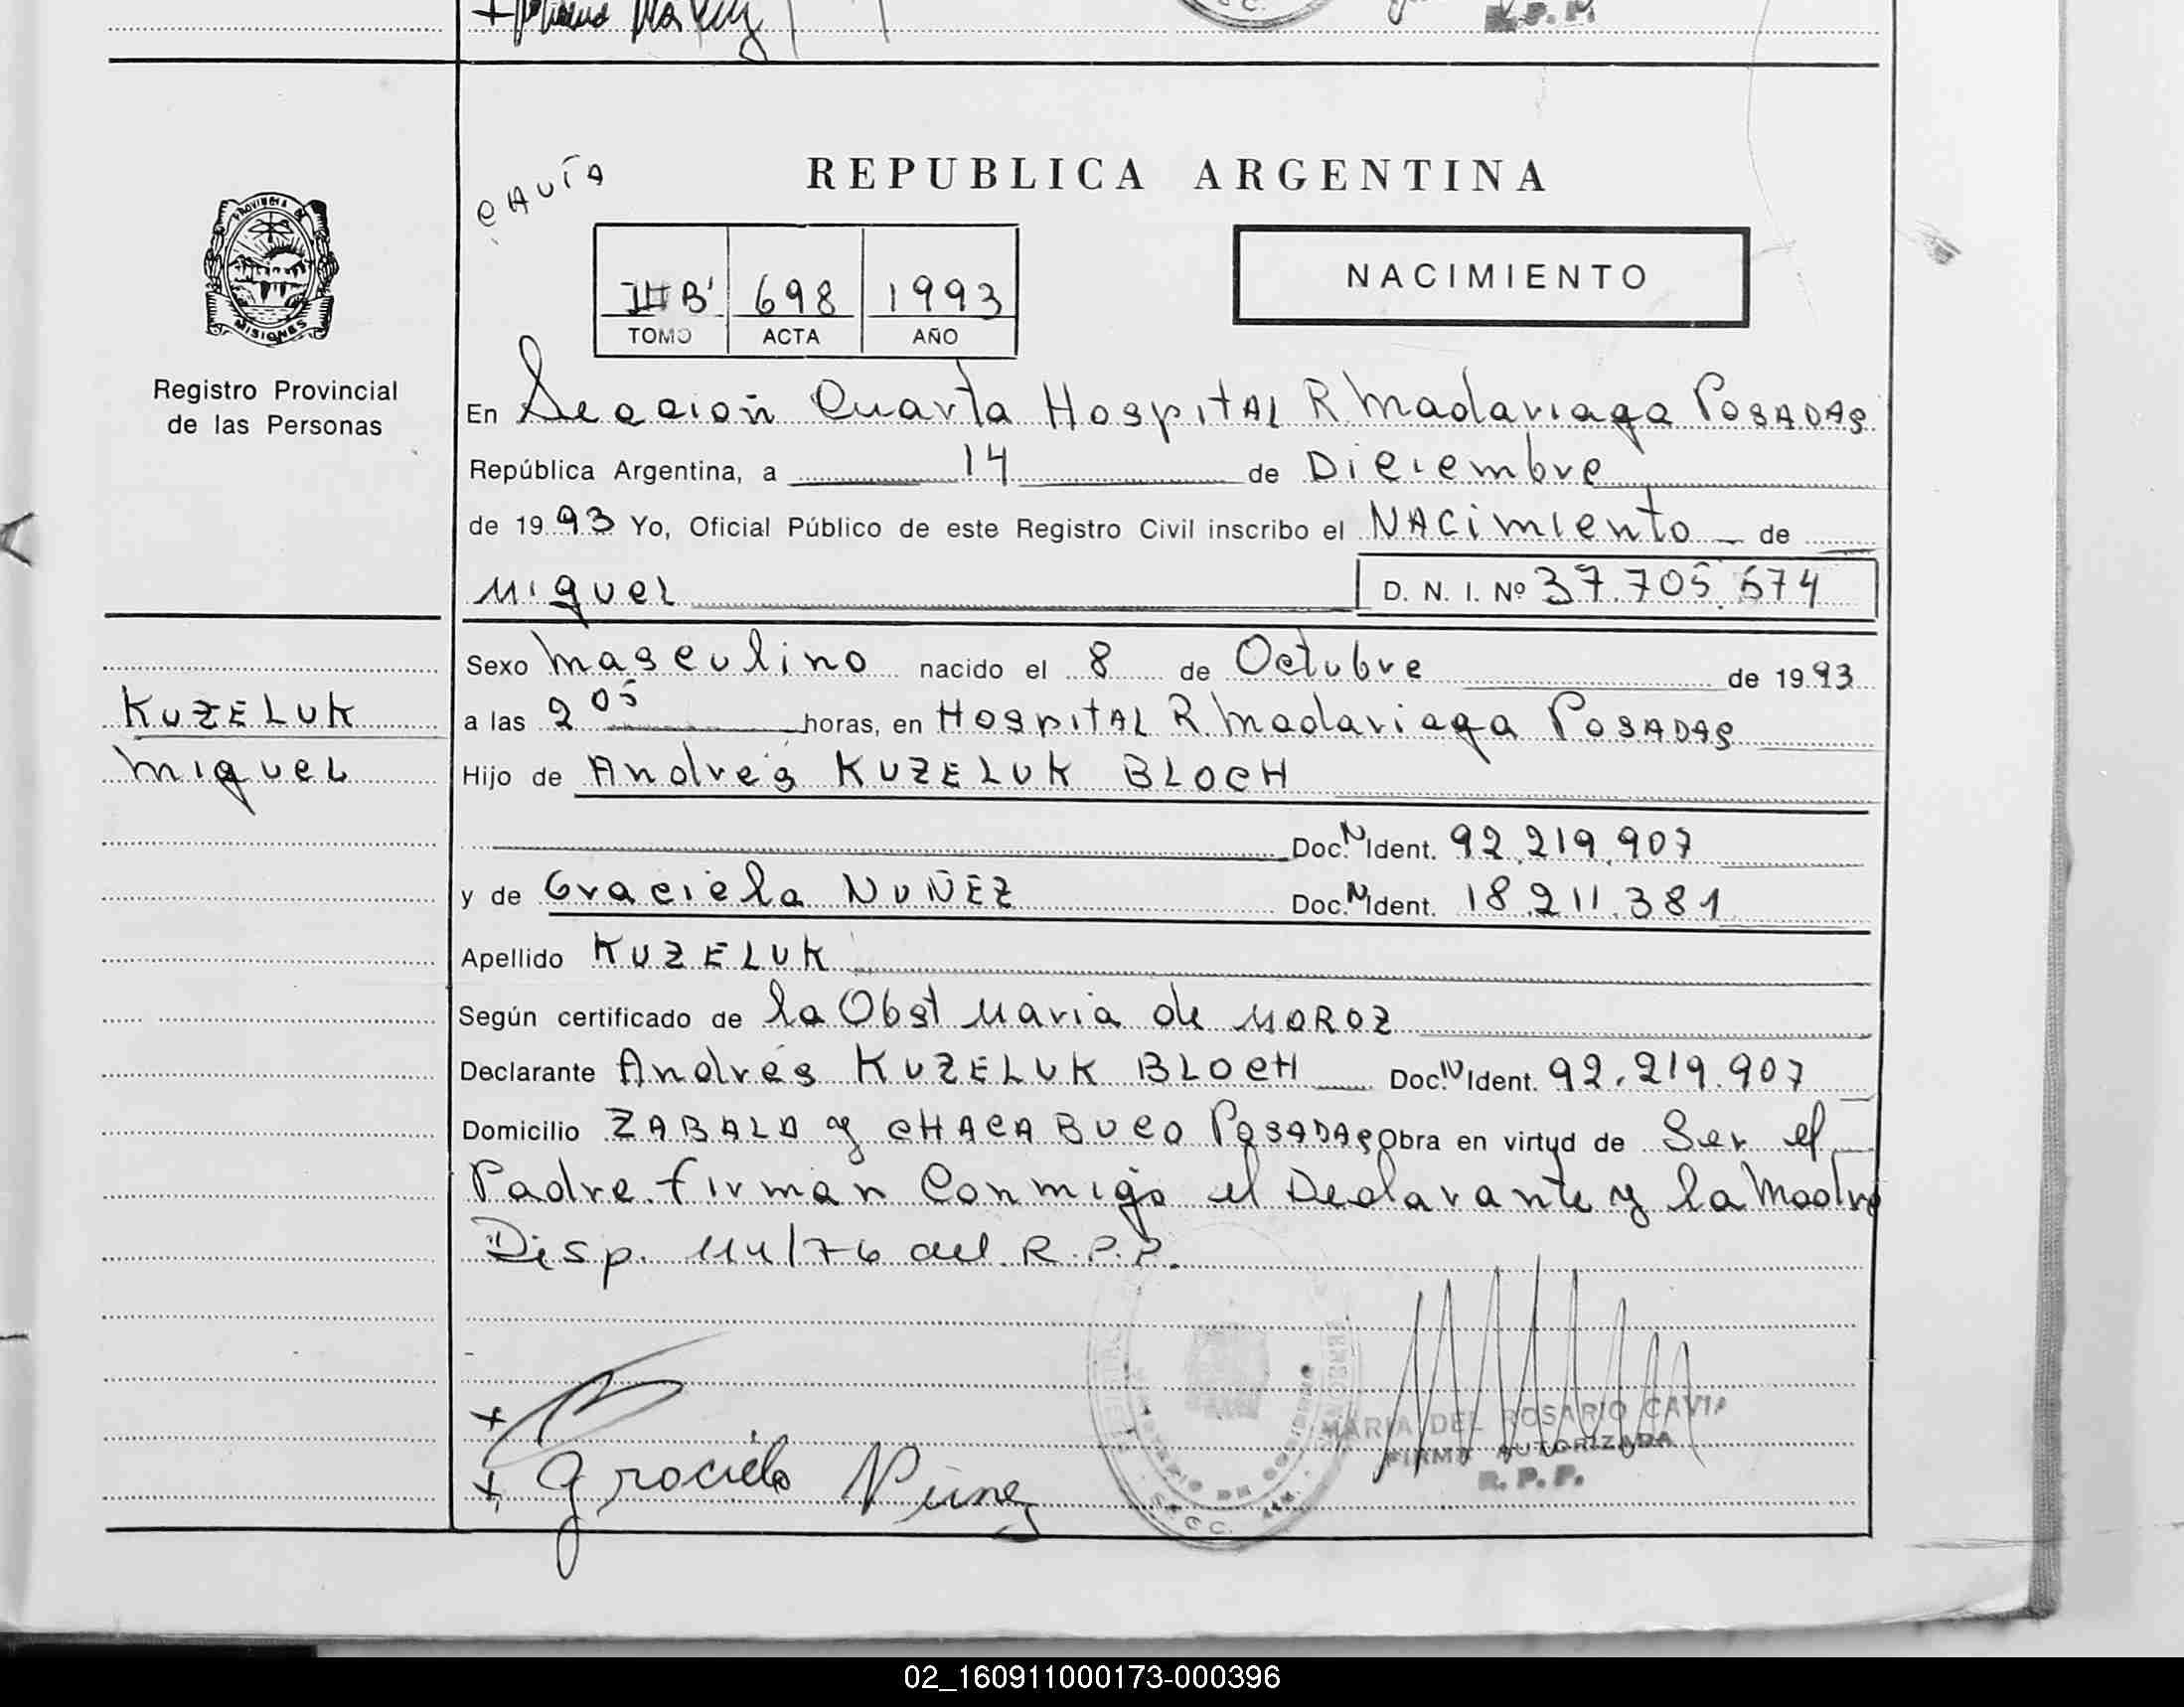 R.P.P.
CAVIA
REPUBLICA ARGENTINA
PROVINCIA DE
MISIONES
Registro Provincial
de las Personas
III B' 698 1993
TOMO ACTA AÑO
NACIMIENTO
En Seccion Cuarta Hospital R Madariaga Posadas
República Argentina, a 14 de Diciembre
de 1993 Yo, Oficial Público de este Registro Civil inscribo el Nacimiento de
Miguel D. N. I. Nº 37.705.574
Sexo Masculino nacido el 8 de Octubre de 1993
KUZELUK
Miguel
a las 2 05 horas, en Hospital R. Madariaga Posadas
Hijo de Andrés KUZELUK BLOCH
Doc. N Ident. 92.219.907
y de Graciela NUÑEZ Doc. N Ident. 18.211.381
Apellido KUZELUK
Según certificado de la Obst Maria de MOROZ
Declarante Andrés KUZELUK BLOCH Doc. N Ident. 92.219.907
Domicilio ZABALA y CHACABUCO Posadas Obra en virtud de Ser el
Padre firman Conmigo el Declarante y la Madre
Disp. 114/76 del R.P.P.
MARIA DEL ROSARIO CAVIA
FIRMA AUTORIZADA
R. P. P.
Graciela Núñez
02_160911000173-000396